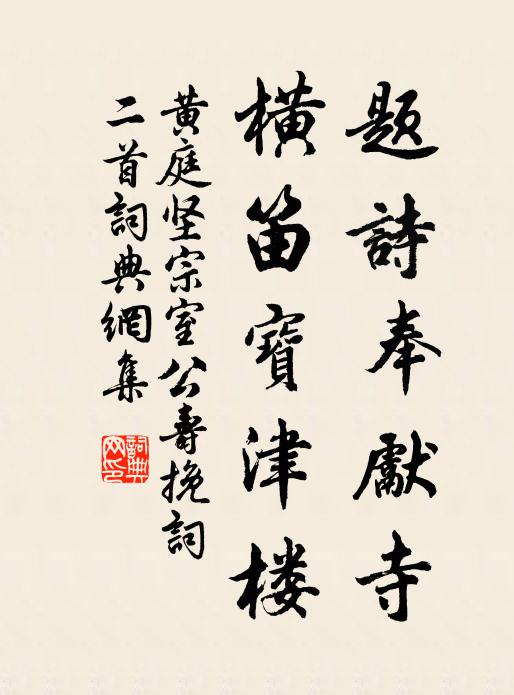 题詩奉獻寺
橫笛寶津楼
黄庭坚宗室公壽挽詞
二首詞典網集
詞典网印